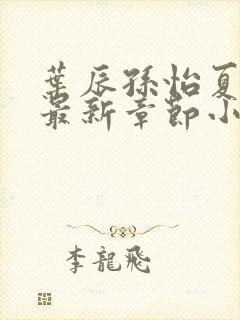 葉辰孫怡夏
最新章節小
李龍飛